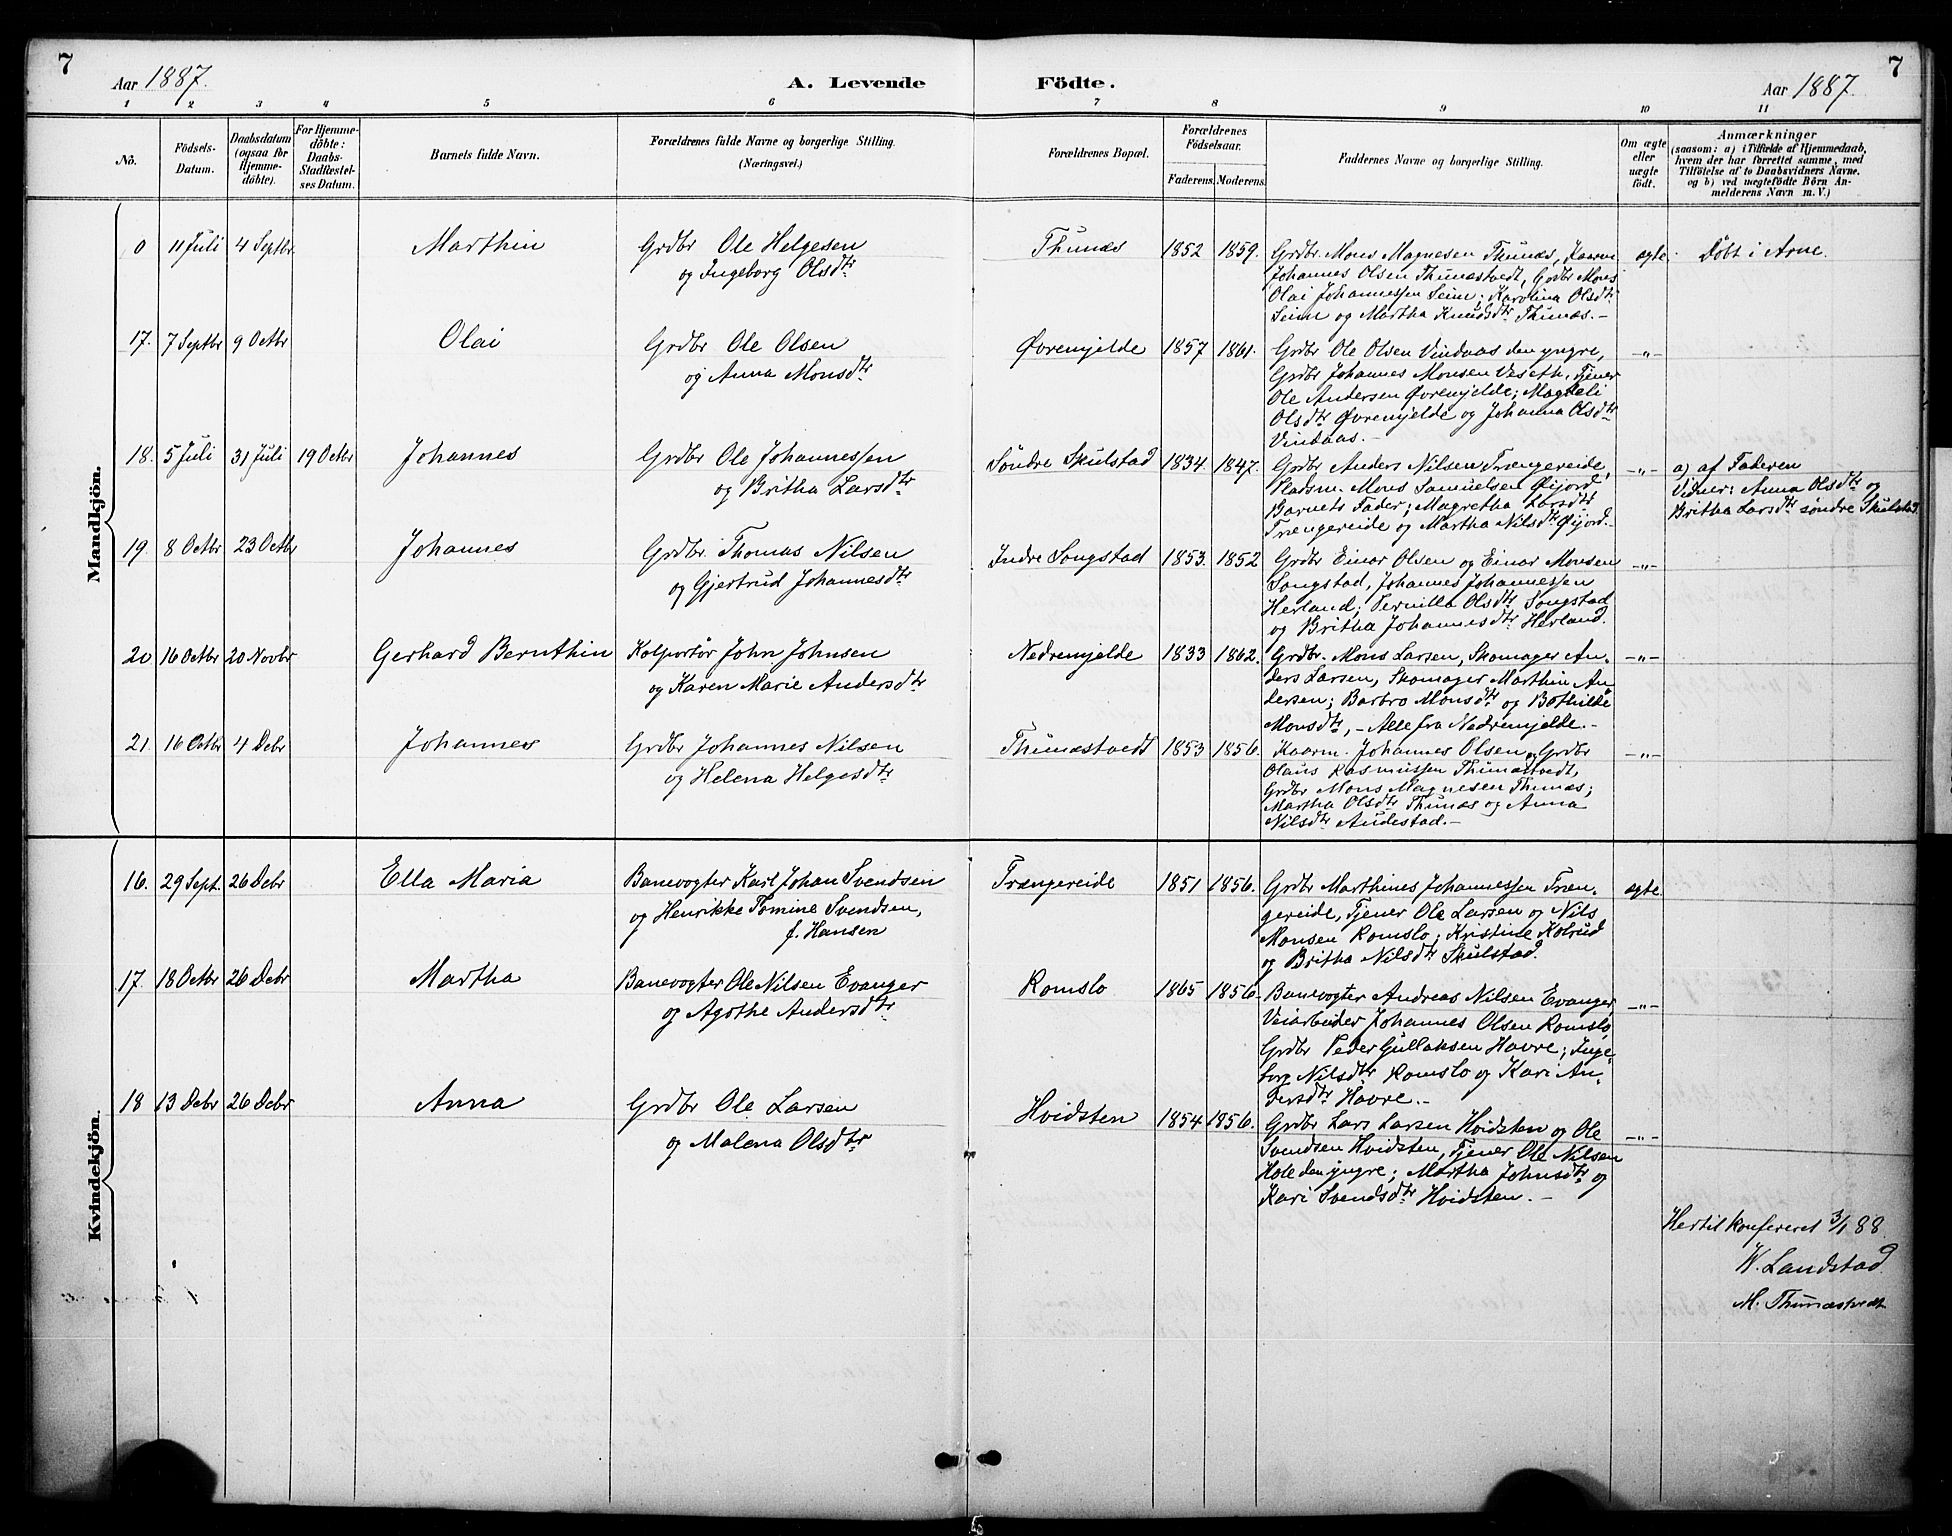 7
Aar 1887.
A. Levende
Födte.
Aar 1887.
7
1 2 3 4 5 6 7 8 9 10 11
No.
Födsels-
Datum.
Daabsdatum
(ogsaa for
Hjemme-
döbte).
For Hjemme-
döbte:
Daabs-
Stadfæstel-
ses Datum.
Barnets fulde Navn.
Forældrenes fulde Navne og borgerlige Stilling.
(Næringsvei.)
Forældrenes Bopæl.
Forældrenes
Födselsaar.
Faderens. Moderens.
Faddernes Navne og borgerlige Stilling.
Om ægte
eller
uægte
født.
Anmærkninger
(saasom: a) i Tilfælde af Hjemmedaab,
hvem der har forrettet samme, med
Tilföielse af to Daabsvidners Navne.
og b) ved uægtefödte Börn An-
melderens Navn m. V.)
Mandkjön.
0 11 Juli 4 Septbr Marthin Grdbr Ole Helgesen
og Ingeborg Olsdtr
Thunæs 1852 1859. Grdbr. Mons Magnesen Thunæs, Kaarm
Johannes Olsen Thunæstvedt, Grdbr Mons
Olai Johannessen Seim; Karolina Olsdtr
Seim og Martha Knudsdtr Thunæs.-
ægte. Døbt i Arne.
17. 7 Septbr 9 Octbr Olai Grdbr Ole Olsen
og Anna Monsdtr
Øvremjelde 1857 1861. Grdbr Ole Olsen Vindaas den yngre,
Grdbr Johannes Monsen Veseth, Tjener
Ole Andersen Øvremjelde; Magteli
Olsdtr Øvremjelde og Johanna Olsdtr
Vindaas.-
-"-
18. 5 Juli 31 Juli 19 Octbr Johannes Grdbr Ole Johannessen
og Britha Larsdtr
Søndre Skulstad 1834. 1847. Grdbr Anders Nilsen Trængereide,
Pladsm. Mons Samuelsen Øijord
Barnets Fader; Magretha Larsdtr
Trængereide og Martha Nilsdtr Øijord.-
-"- a) af Faderen
Vidner: Anna Olsdtr og
Britha Larsdtr søndre Skulstad.
19. 8 Octbr 23 Octbr Johannes Grdbr. Thomas Nilsen
og Gjertrud Johannesdtr
Indre Songstad 1853. 1852 Grdbr Einar Olsen og Einar Monsen
Songstad, Johannes Johannessen
Herland; Pernilla Olsdtr Songstad
og Britha Johannesdtr Herland.
-"-
20 16 Octbr 20 Novbr Gerhard Bernthin Kolportør John Johnsen
og Karen Marie Andersdtr
Nedremjelde 1833 1862. Grdbr. Mons Larsen, Skomager An-
ders Larsen, Skomager Marthin An-
dersen; Barbro Monsdtr og Bothilde
Monsdtr, - Alle fra Nedremjelde.-
-"-
21. 16 Octbr 4 Debr Johannes Grdbr Johannes Nilsen
og Helena Helgesdtr
Thunæstvedt 1853 1856. Kaarm. Johannes Olsen og Grdbr
Olaus Rasmussen Thunæstvedt,
Grdbr Mons Magnesen Thunæs;
Martha Olsdtr Thunæs og Anna
Nilsdtr Audestad.-
-"-
Kvindekjön.
16. 29 Sept. 26 Debr Ella Maria Banevogter Karl Johan Svendsen
og Henrikke Tomine Svendsen,
f. Hansen
Trængereide 1851 1856. Grdbr Marthines Johannessen Træn-
gereide, Tjener Ole Larsen og Nils
Monsen Romslo; Kristine Kolrud
og Britha Nilsdtr Skulstad.
ægte.
17. 18 Octbr 26 Debr Martha Banevogter Ole Nilsen Evanger
og Agothe Andersdtr
Romslo 1865 1856. Banevogter Andreas Nilsen Evanger,
Veiarbeider Johannes Olsen Romslo
Grdbr Peder Gullaksen Havre; Inge-
borg Nilsdtr Romslo og Kari An-
dersdtr Havre.-
-"-
18 13 Debr 26 Debr Anna Grdbr Ole Larsen
og Malena Olsdtr
Hvidsten 1854 1856. Grdbr Lars Larsen Hvidsten og Ole
Svendsen Hvidsten, Tjener Ole Nilsen
Hole den yngre; Martha Johnsdtr og
Kari Svendsdtr Hvidsten.-
-"-
Hertil konfereret 3/1 88.
W. Landstad
M. Thunæstvedt